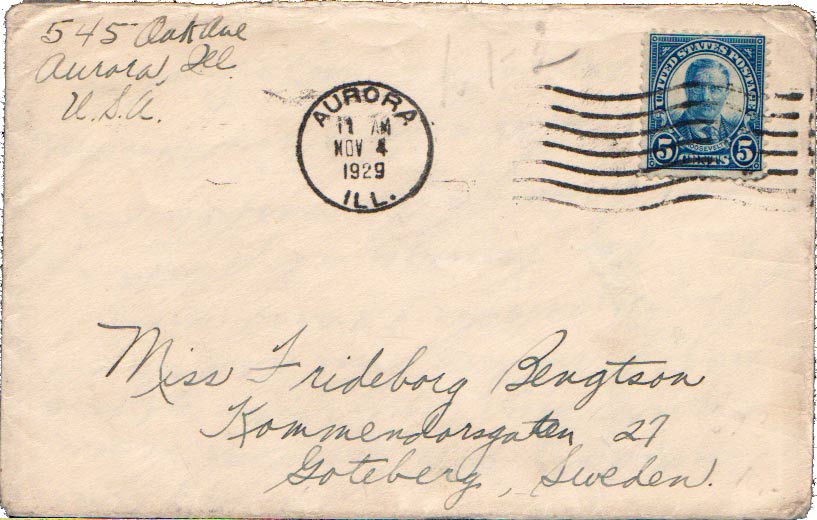 545 Oak Ave
Aurora, Ill.
U.S.A.
AURORA
11 AM
NOV 4
1929
ILL.
UNITED STATES POSTAGE
ROOSEVELT
5 CENTS 5
Miss Frideborg Bengtson
Kommendorsgaten 27
Goteberg, Sweden.